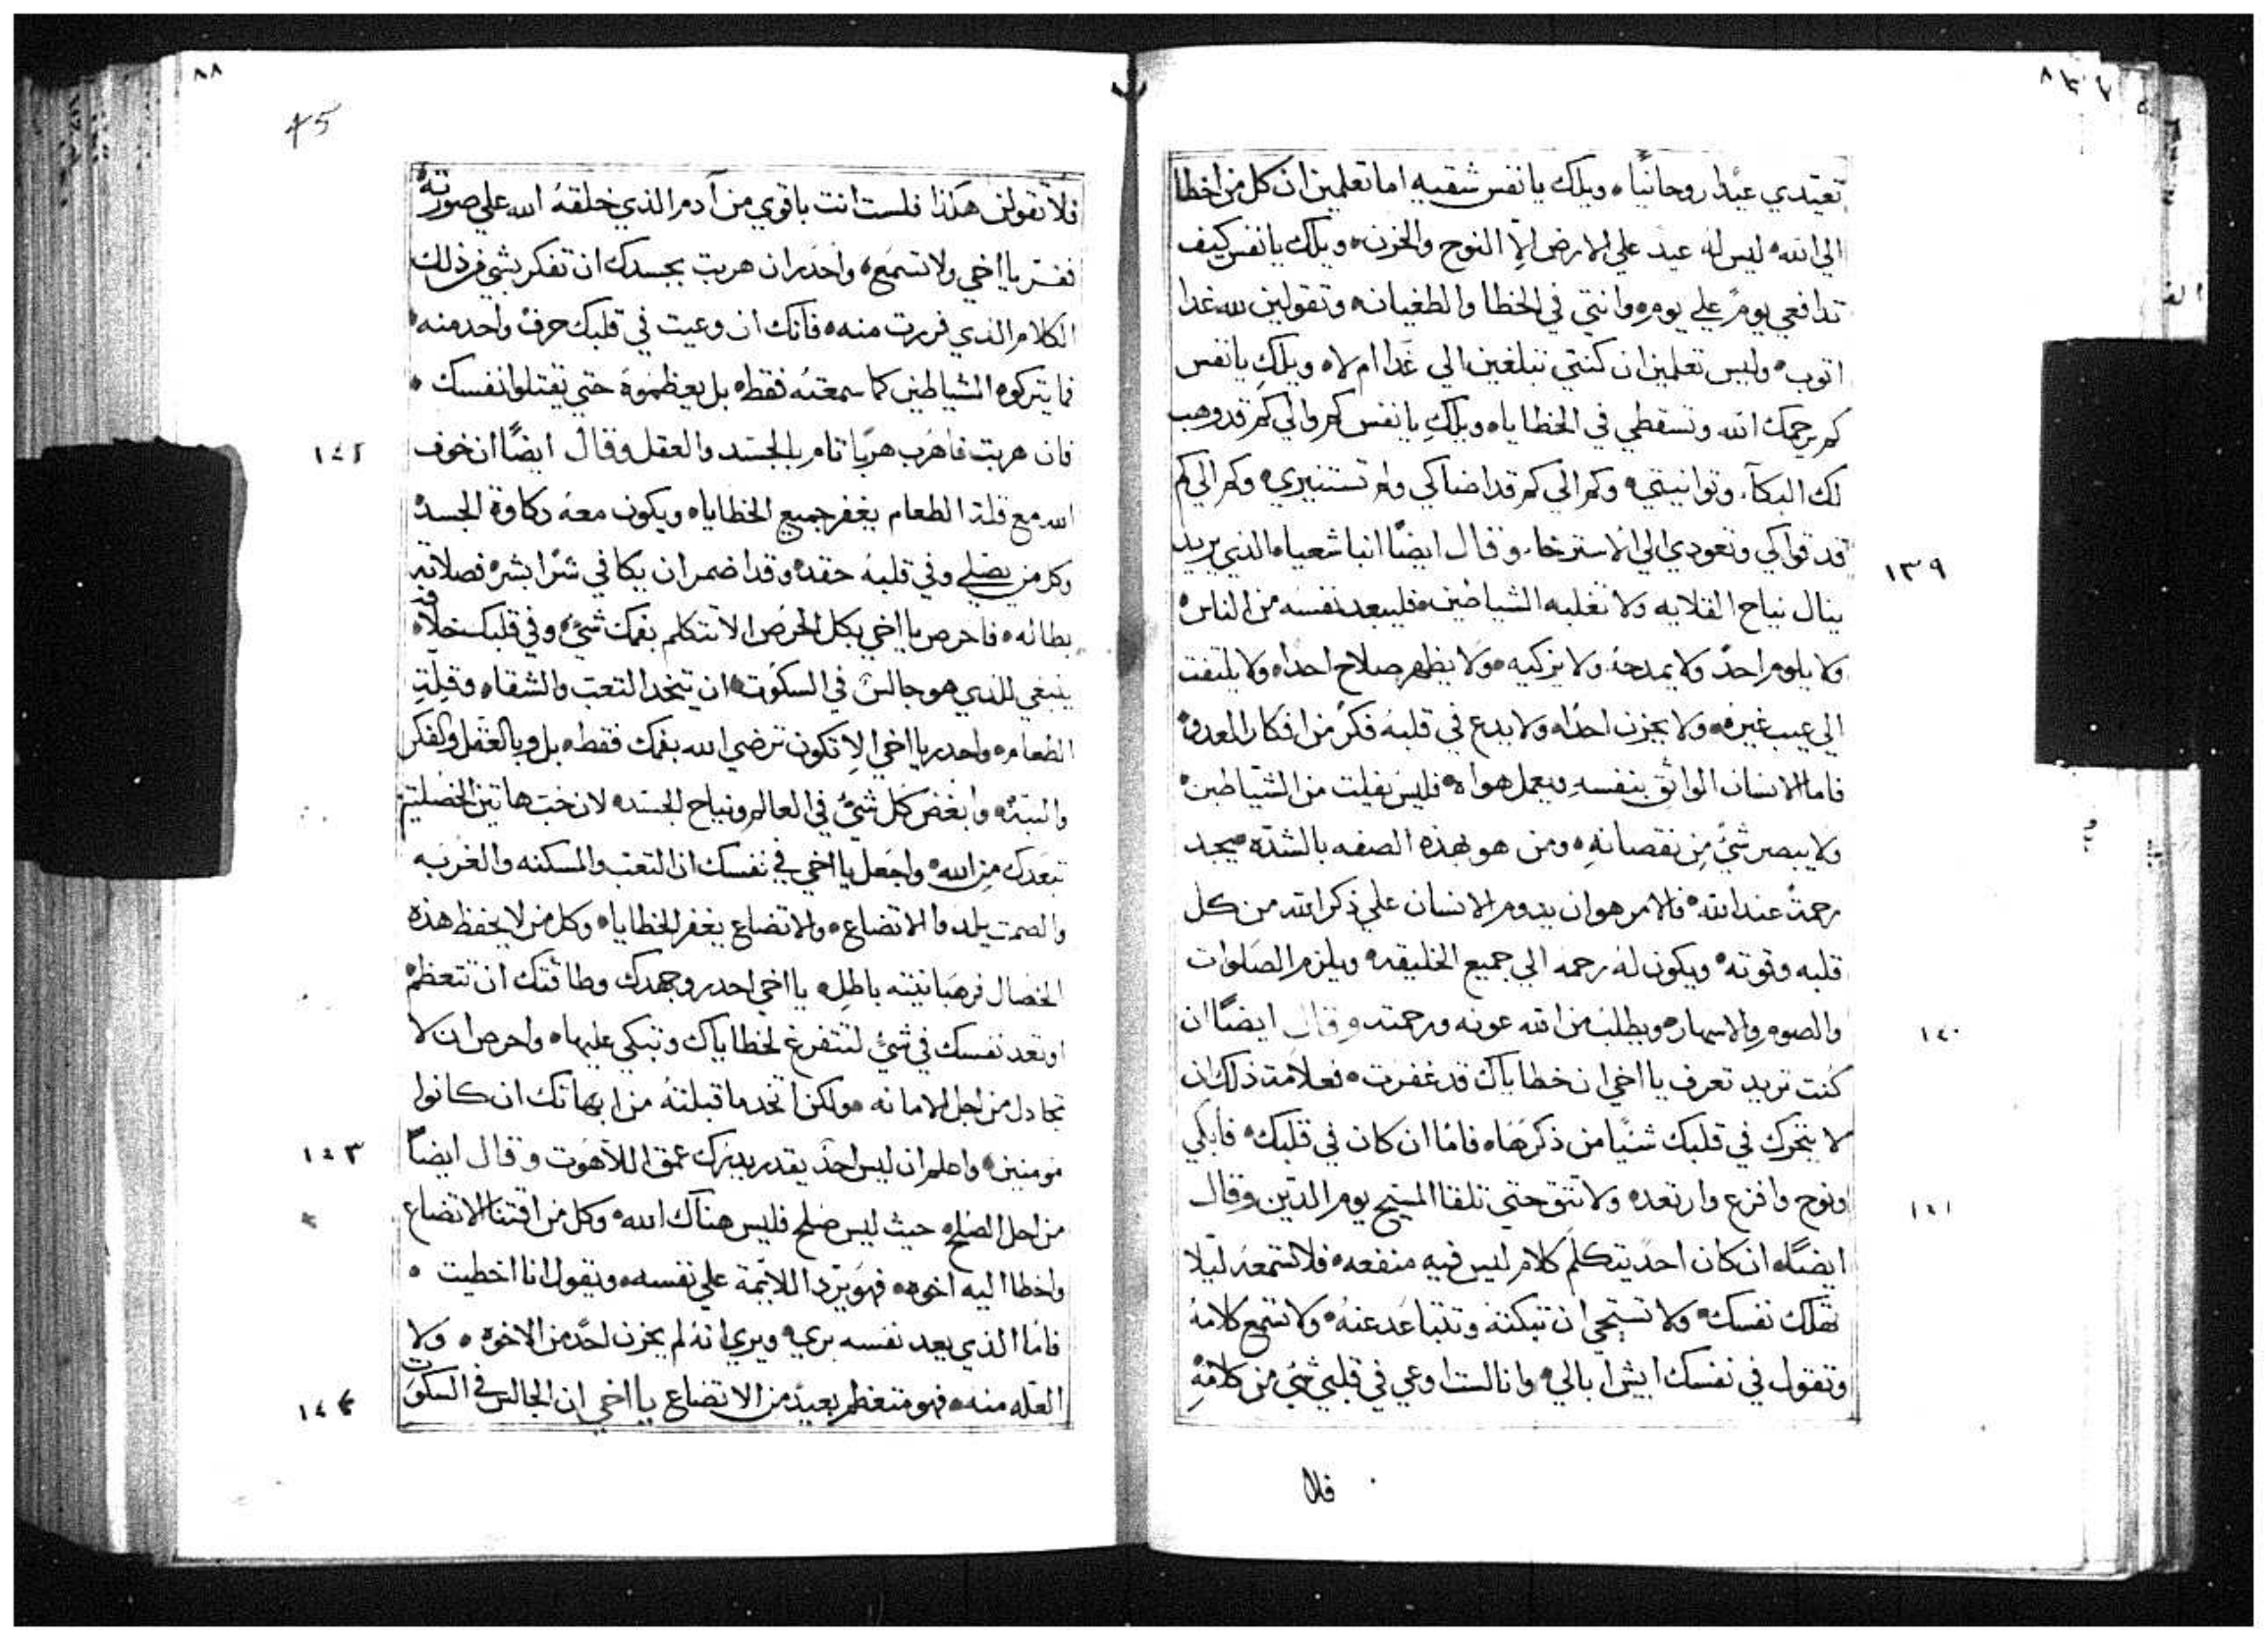 تعيدي عيدا روحانيا ٥ ويلك يا نفس شقيه اما تعلمين ان كل من اخطا
الي الله ليس له عيد علي الارض الا النوح والحزن ٥ ويلك يا نفس كيف
تدافعي يوم علي يوم ٥ وانتي في الخطا والطغيان ٥ وتقولين لله غدا
اتوب ٥ وليس تعلمين ان كنتي تبلغين الي غدا ام لا ٥ ويلك يا نفس
كم يرحمك الله وتسقطي في الخطايا ٥ ويلك يا نفس كم والي كم قد وهب
لك البكآء وتوانيتي ٥ وكم الي كم قد اضاكي ولم تستنيري ٥ وكم الي كم
قد قواكي وتعودي الي الاسترخا ٥ وقال ايضًا انبا شعيا ٥ الذي يريد
١٣٩
ينال نياح القلايه ولا تغلبه الشياطين ٥ فليبعد نفسه من الناس ٥
ولا يلوم احد ولا يمدحه ٥ ولا يزكيه ٥ ولا يظهر صلاح احدا ٥ ولا يلتفت
الي عيب غيره ٥ ولا يحزن احدا ٥ ولا يدع في قلبه فكر من افكار العدو ٥
فاما الانسان الواثق بنفسه ويعمل هواه ٥ فليس يفلت من الشياطين ٥
ولا يبصر شي من نقصانه ٥ ومن هو بهذه الصفه بالشدة يجد
رحمة عند الله ٥ فالامر هو ان يدوم الانسان علي ذكر الله من كل
قلبه وقوته ٥ ويكون له رحمه الي جميع الخليقه ٥ ويلزم الصلوات
والصوم والاسهار ٥ ويطلب من الله عونه ورحمته ٥ وقال ايضًا ان
١٤٠
كنت تريد تعرف يا اخي ان خطاياك قد غفرت ٥ فعلامة ذلك ان
لا يتحرك في قلبك شيًا من ذكرها ٥ فاما ان كان في قلبك ٥ فابكي
ونوح وافزع وارتعد ٥ ولا تثق حتي تلقا المسيح يوم الدين وقال
١٤١
ايضًا ٥ ان كان احد يتكلم كلام ليس فيه منفعه ٥ فلا تسمعه ليلا
تهلك نفسك ٥ ولا تستحي ان تبكته وتتباعد عنه ٥ ولا تسمع كلامه
وتقول في نفسك ايش ابالي ٥ وانا لست اوعي في قلبي شي من كلامه
فلا
٨٨
45
فلا تقولن هكذا فلست انت باقوي من آدم الذي خلقه الله علي صورته
ففر يا اخي ولا تسمع ٥ واحذر ان هربت بجسدك ان تفكر بشي من ذلك
الكلام الذي فررت منه ٥ فانك ان وعيت في قلبك حرف واحد منه ٥
فما يتركوه الشياطين كما سمعته فقط ٥ بل يعظموه حتي يقتلوا نفسك ٥
فان هربت فاهرب هربًا تام بالجسد والعقل وقال ايضًا ان خوف
١٤٢
الله مع قلة الطعام يغفر جميع الخطايا ٥ ويكون معه دكاوة الجسد ٥
وكل من يصلي وفي قلبه حقد ٥ وقد اضمر ان يكافي شرا بشر ٥ فصلاته
بطاله ٥ فاحرص يا اخي بكل الحرص الا تتكلم بفمك شي ٥ وفي قلبك خلافه
ينبغي للذي هو جالس في السكوت ٥ ان يتخد التعب والشقا ٥ وقلة
الطعام ٥ واحدر يا اخي الا تكون ترضي الله بفمك فقط ٥ بل وبالعقل والفكر
والنية ٥ وابغض كل شي في العالم ونياح الجسد ٥ لان حب هاتين الخصلتين
تبعدك من الله ٥ واجعل يا اخي في نفسك ان التعب والمسكنه والغربه
والصمت يلدوا الاتضاع ٥ والاتضاع يغفر الخطايا ٥ وكل من لا يحفظ هذه
الخصال فرهبانيته باطل ٥ يا اخي احدر وجهدك وطاقتك ان تتعظم
اوتعد نفسك في شي لتتفرغ لخطاياك وتبكي عليها ٥ واحرص ان لا
تجادل من اجل الامانه ٥ ولكن اتخد ما قبلته من ابهاتك ان كانوا
مومنين ٥ واعلم ان ليس احد يقدر يدرك عمق اللاهوت وقال ايضًا
١٤٣
من اجل الصلح ٥ حيث ليس صلح فليس هناك الله ٥ وكل من اقتنا الاتضاع
واخطا اليه اخوه ٥ فهو يرد اللايمة علي نفسه ٥ ويقول انا اخطيت ٥
فاما الذي يعد نفسه بري ٥ ويري انه لم يحزن احد من الاخوه ٥ ولا
العله منه ٥ فهو متعظم بعيد من الاتضاع يا اخي ان الجالس في السكوت
١٤٤